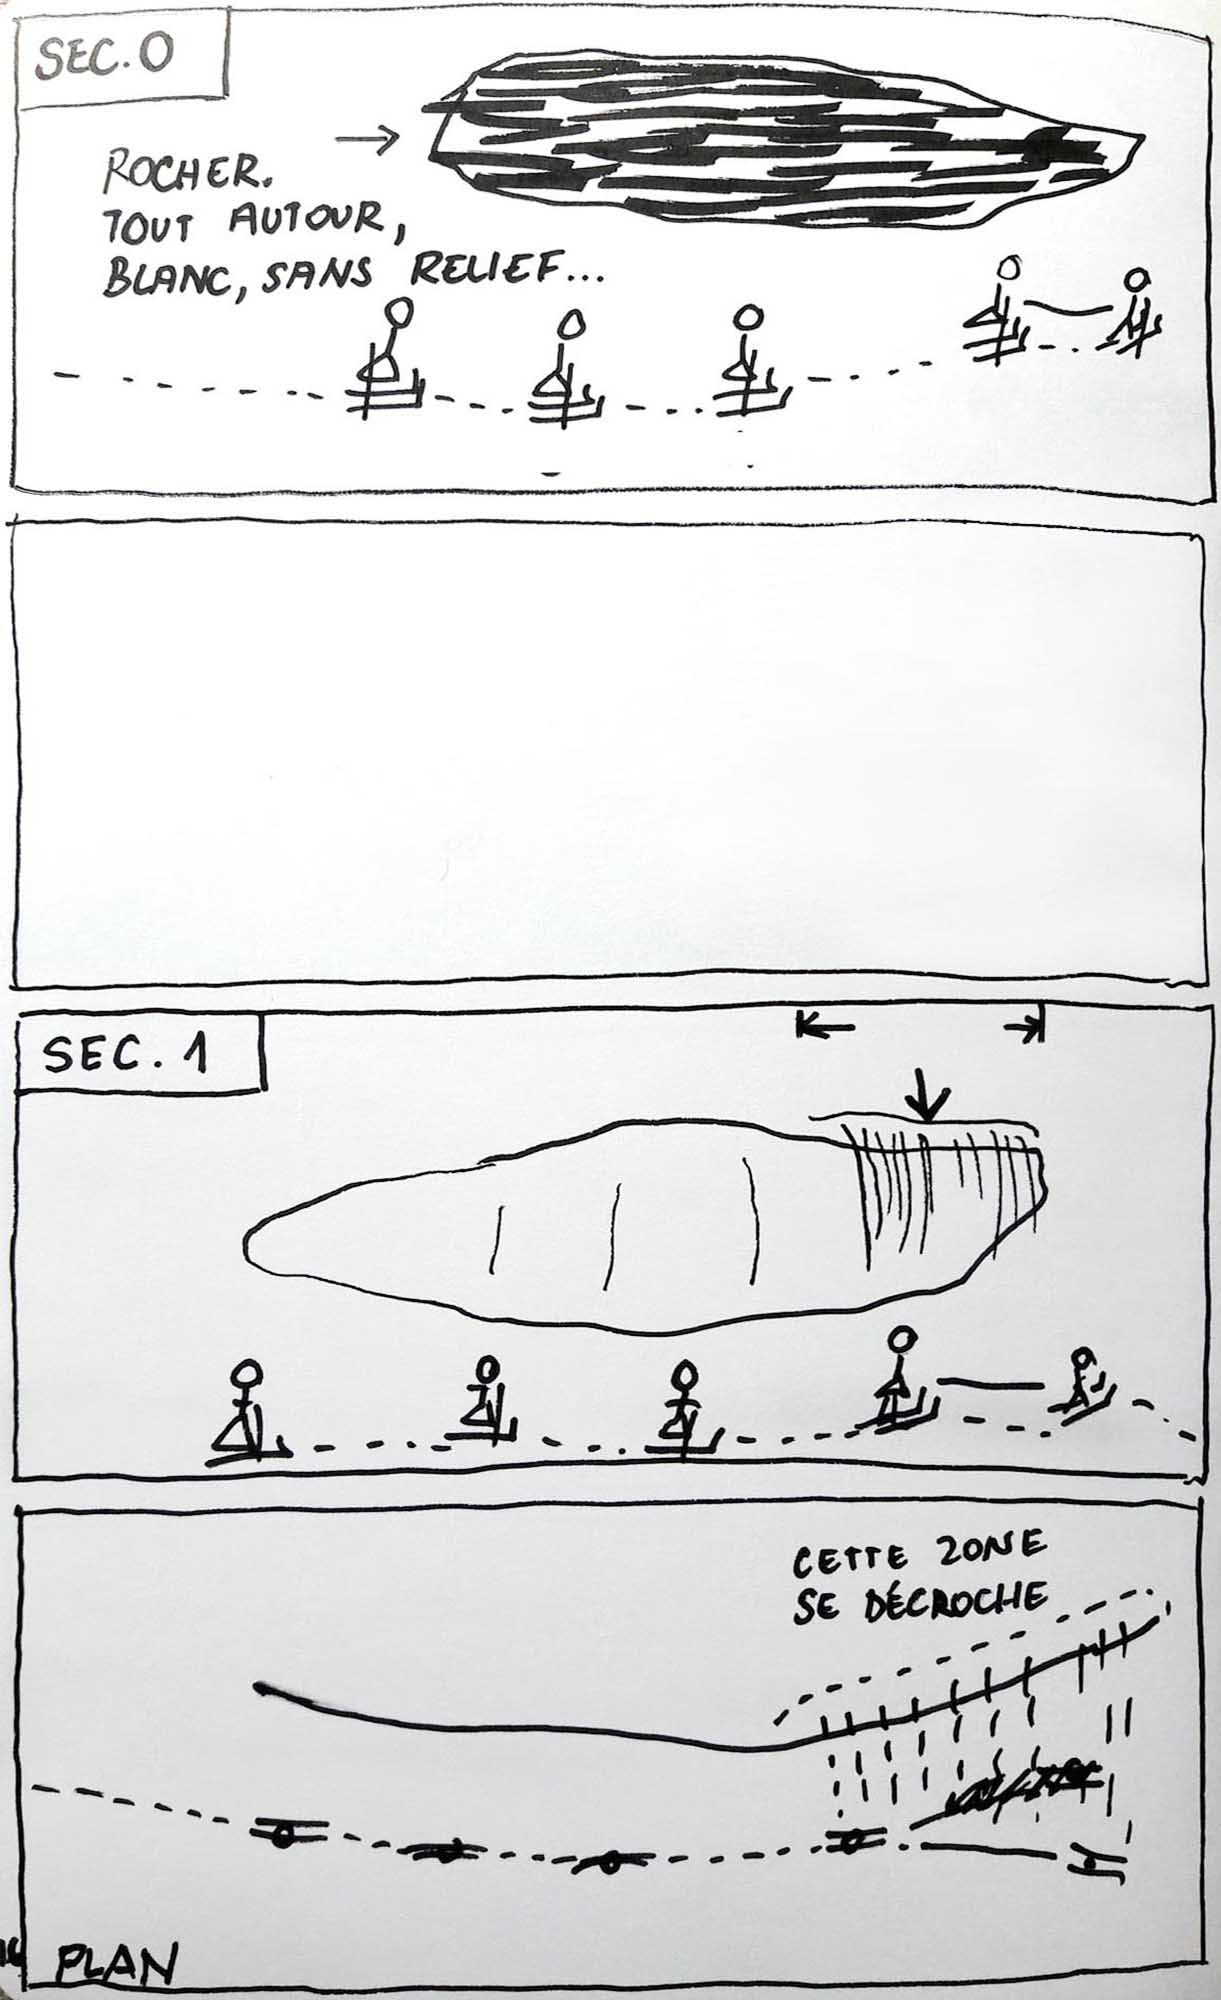 SEC. 0
ROCHER.
TOUT AUTOUR,
BLANC, SANS RELIEF...
SEC. 1
CETTE ZONE
SE DÉCROCHE
PLAN